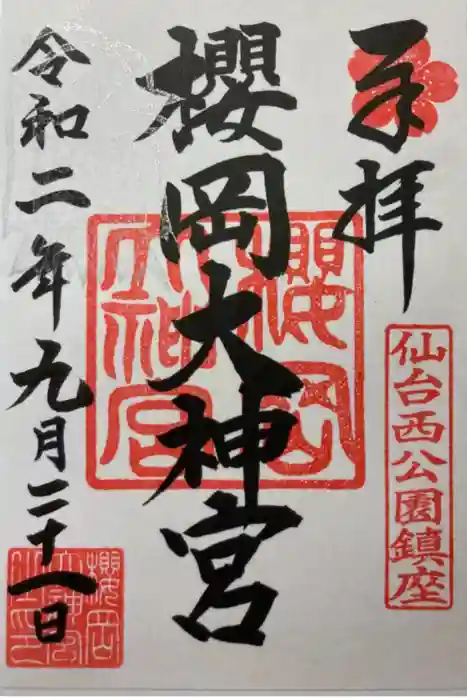 奉拝
仙台西公園鎮座
櫻岡大神宮
櫻岡大神宮
令和二年九月二十一日